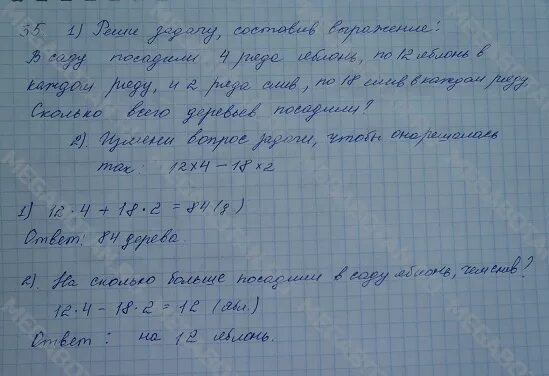 35 1) Реши задачу, составив выражение:
В саду посадили 4 ряда яблонь, по 12 яблонь в
каждом ряду, и 2 ряда слив, по 18 слив в каждом ряду
Сколько всего деревьев посадили?
2). Измени вопрос задачи, чтобы она решалась
так: 12×4 – 18×2
1) 12·4 + 18·2 = 84 (д)
Ответ: 84 дерева.
2). На сколько больше посадили в саду яблонь, чем слив?
12·4 – 18·2 = 12 (ябл.)
Ответ: на 12 яблонь.